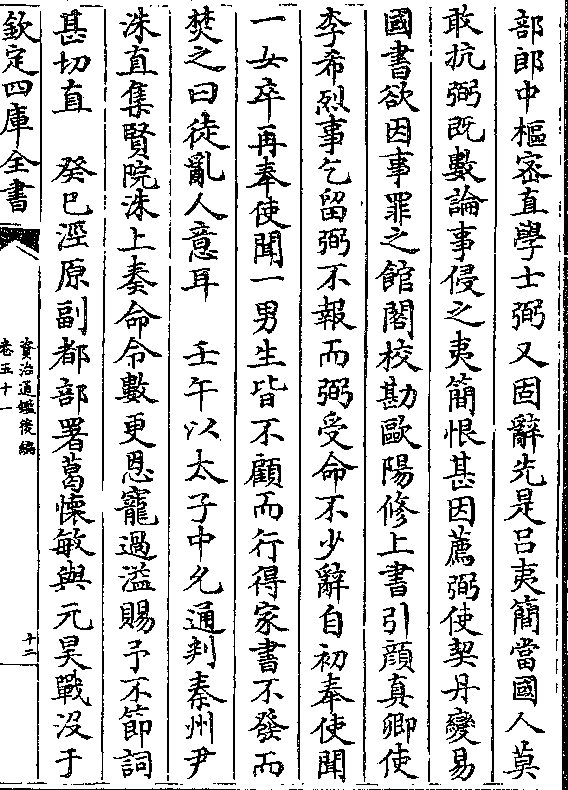 部郎中樞密直學士弼又固辭先是呂夷簡當國人莫
敢抗弼既數論事侵之夷簡恨甚因薦弼使契丹變易
國書欲因事罪之館閣校勘歐陽修上書引顔真卿使
李希烈事乞留弼不報而弼受命不少辭自初奉使聞
一女卒再奉使聞一男生皆不顧而行得家書不發而
焚之曰徒亂人意耳　壬午以太子中允通判秦州尹
洙直集賢院洙上奏命令數更恩寵過溢賜予不節詞
甚切直　癸巳涇原副都部署葛懷敏與元昊戰沒于
欽定四庫全書
資治通鑑後編
卷五十一
十二